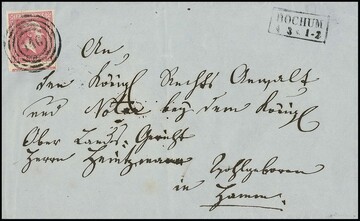 BOCHUM
3 1-2
An
den Königl Rechts Anwalt
und Notar bey dem Königl
Ober Lands-Gericht
Herrn Heintzmann
Wohlgeboren
in
Hamm.